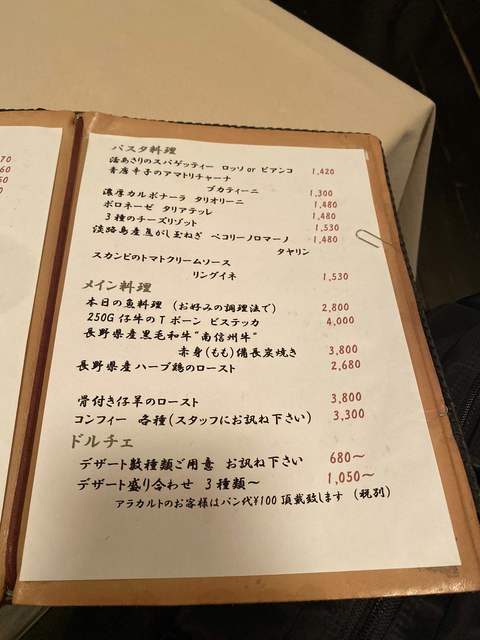 70
60
50
0
パスタ料理
活あさりのスパゲッティー ロッソ or ビアンコ 1,420
青唐辛子のアマトリチャーナ
ブカティーニ 1,300
濃厚カルボナーラ タリオリーニ 1,480
ボロネーゼ タリアテッレ 1,480
3種のチーズリゾット 1,530
淡路島産焦がし玉ねぎ ペコリーノロマーノ 1,480
タヤリン
スカンピのトマトクリームソース
リングイネ 1,530
メイン料理
本日の魚料理 (お好みの調理法で) 2,800
250G 仔牛のTボーン ビステッカ 4,000
長野県産黒毛和牛"南信州牛"
赤身(もも)備長炭焼き 3,800
長野県産ハーブ鶏のロースト 2,680
骨付き仔羊のロースト 3,800
コンフィー 各種(スタッフにお訊ね下さい) 3,300
ドルチェ
デザート数種類ご用意 お訊ね下さい 680～
デザート盛り合わせ 3種類～ 1,050～
アラカルトのお客様はパン代¥100頂戴致します (税別)